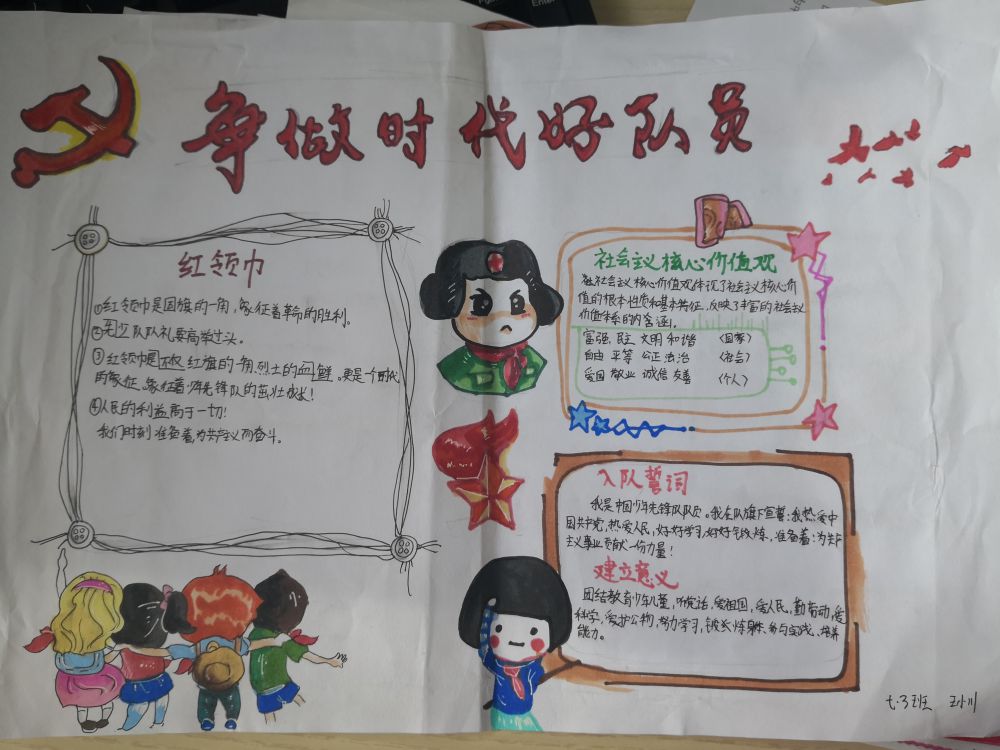 争做时代好队员
红领巾
①红领巾是国旗的一角,象征着革命的胜利。
②先少队队礼要高举过头。
③红领巾是 红旗的一角,烈士的血鲜。更是一个时代
的象征、象征着少年先锋队的茁壮成长!
④人民的利益高于一切!
我们时刻准备着为共产主义而奋斗。
社会主义核心价值观
社会主义核心价值观体现了社会主义核心价
值的根本性质和基本特征,反映了丰富的社会主义
价值体系的内含涵。
富强 民主 文明 和谐 (国家)
自由 平等 公正 法治 (社会)
爱国 敬业 诚信 友善 (个人)
入队誓词
我是中国少年先锋队队员。我在队旗下宣誓:我热爱中
国共中党,热爱人民,好好学习,好好锻炼,准备着:为共产
主义事业贡献一份力量!
建立意义
团结教育少年儿童,听党话,爱祖国,爱人民,勤劳动,爱
科学,爱护公物,努力学习,锻炼身体、参与实践、培养
能力。
七.3班